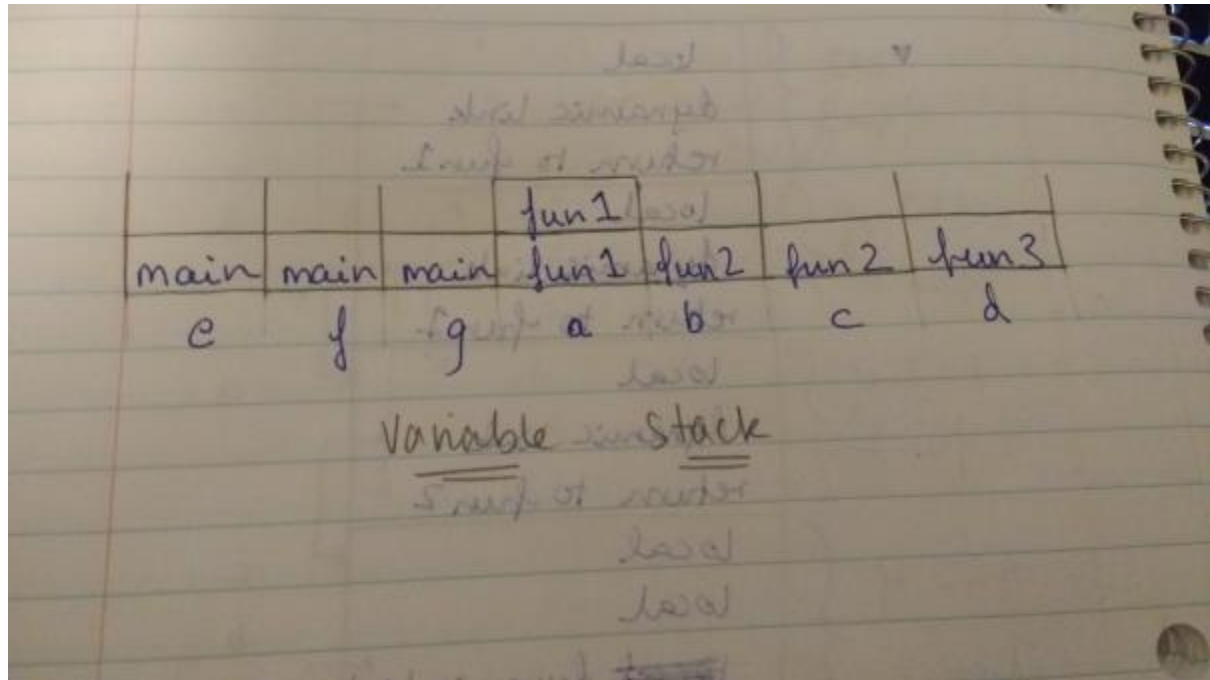 fun 1
main main main fun 1 fun 2 fun 2 fun 3
e f g a b c d
Variable Stack